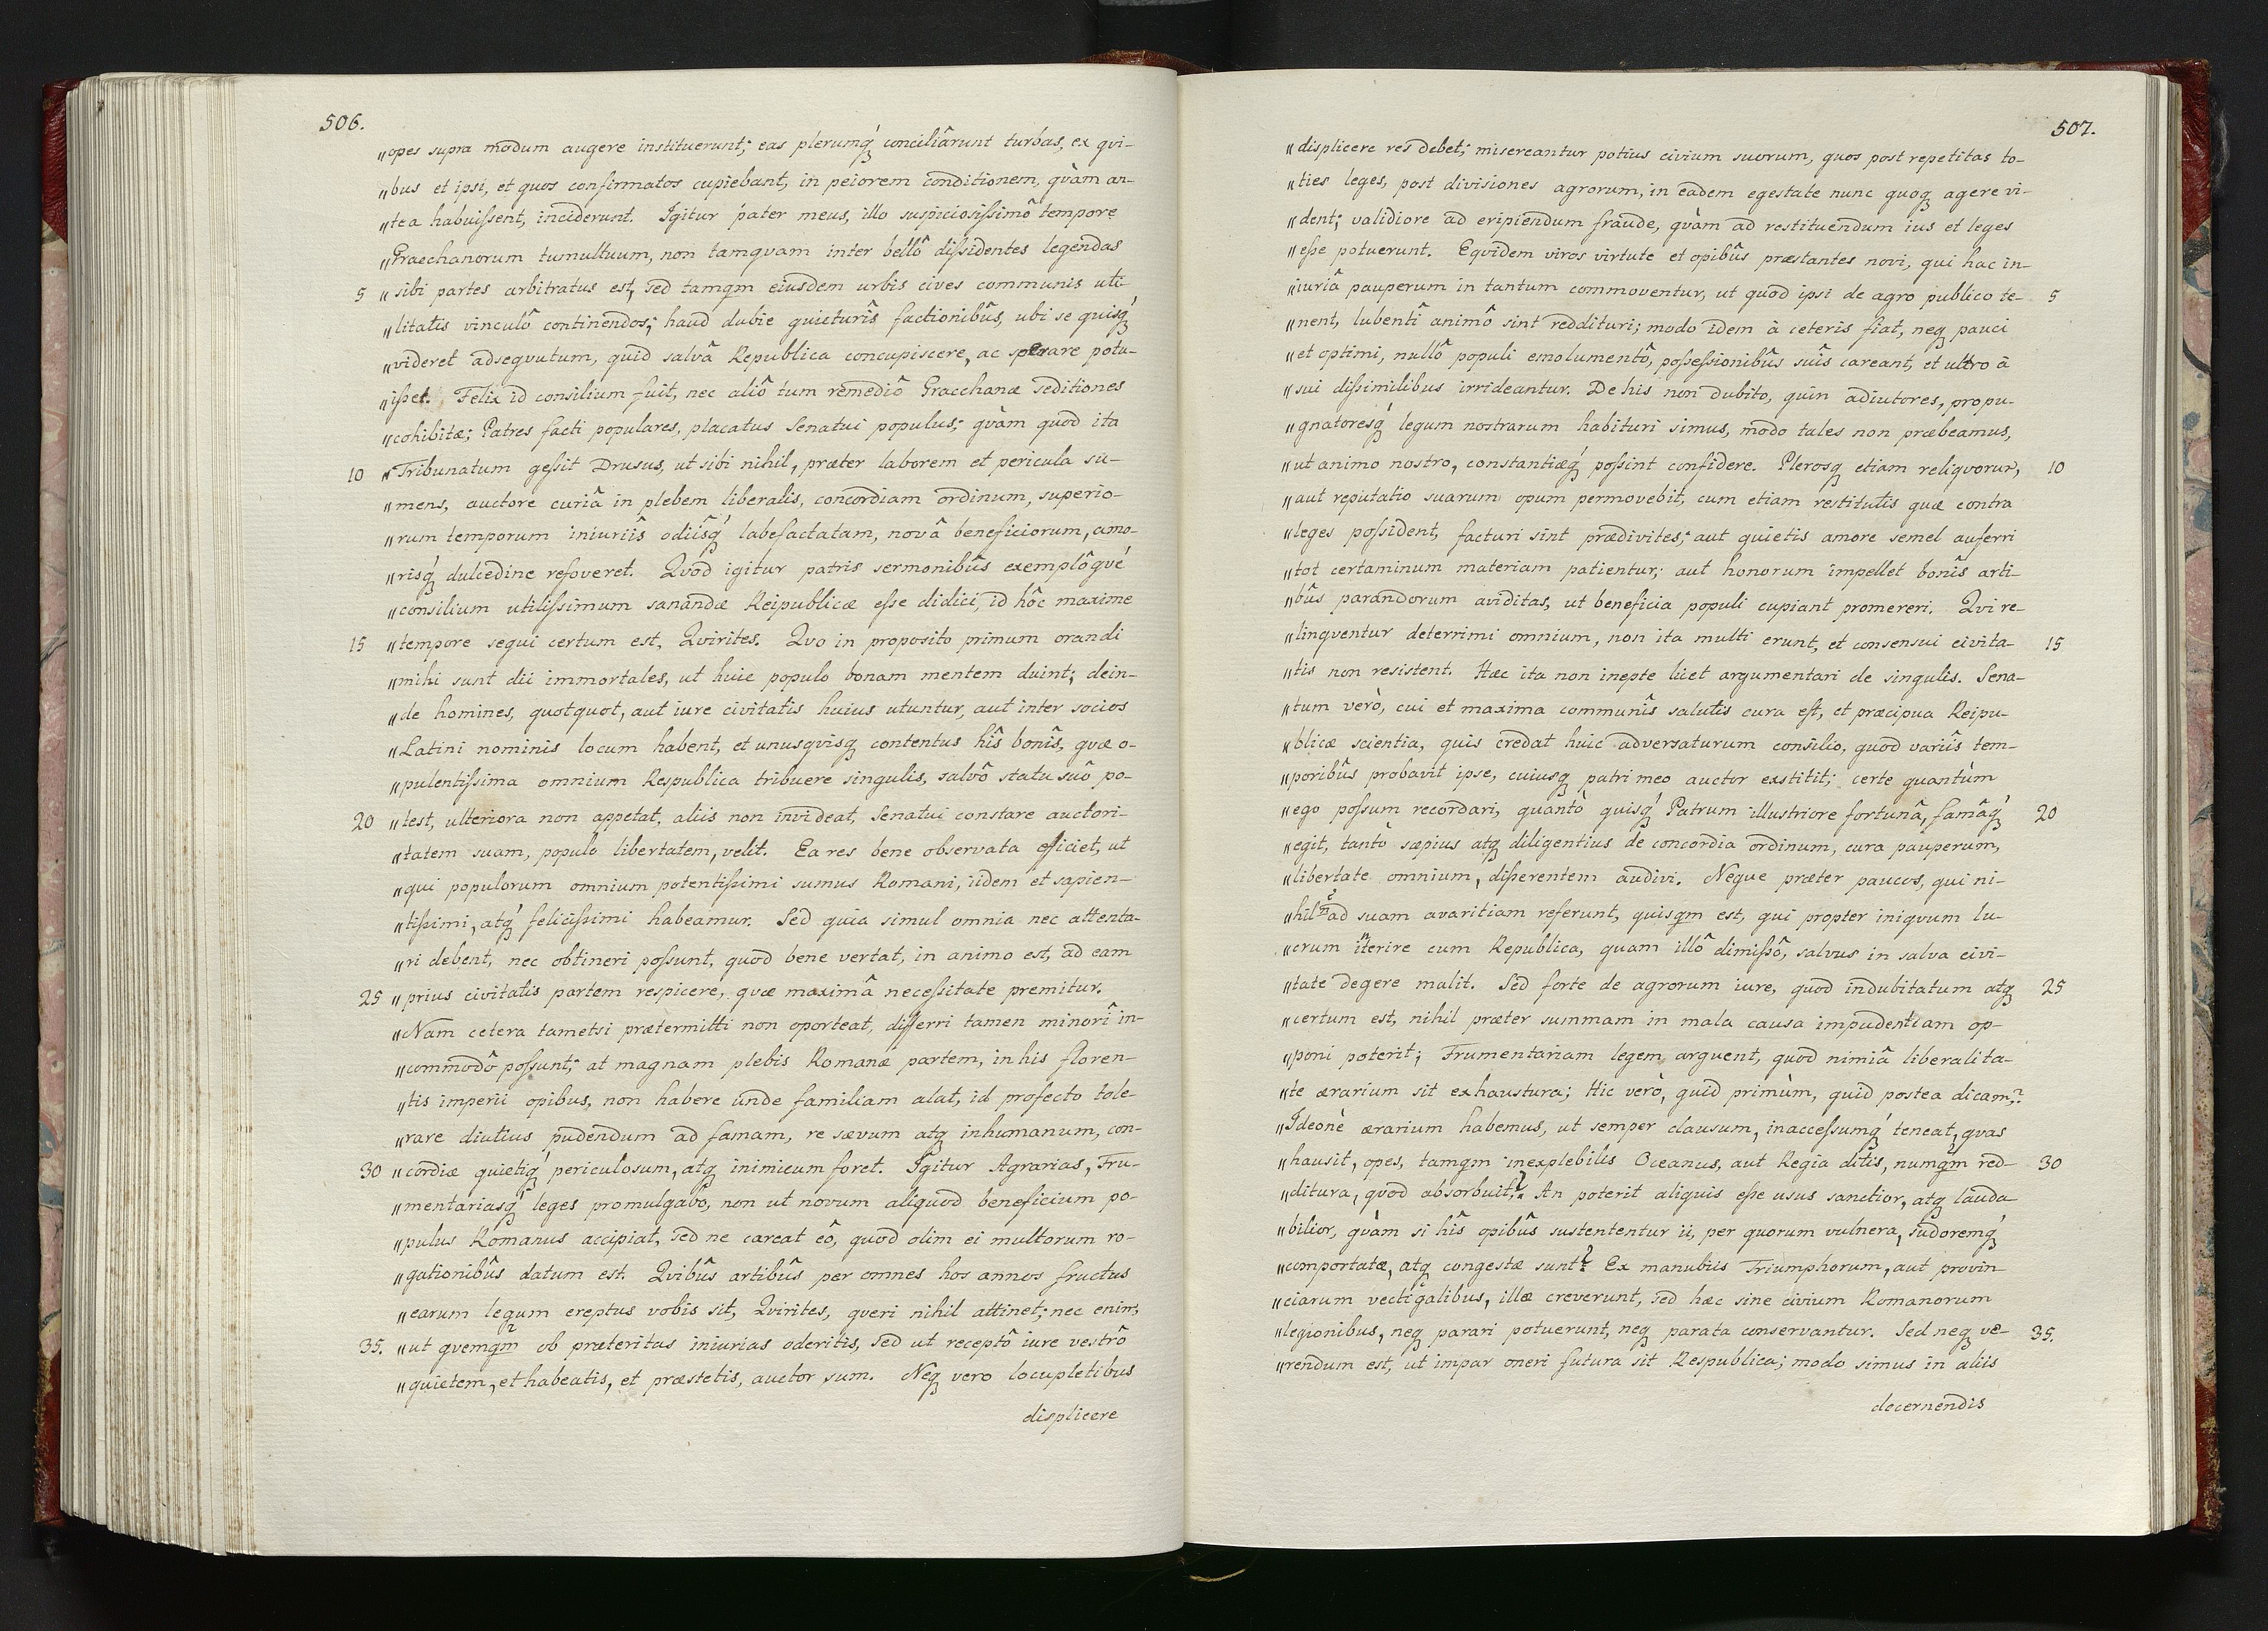 506.
„opes supra modum augere instituerunt; eas plerumq́ conciliârunt turbas, ex qvi-
„bus et ipsi, et quos confirmatos cupiebant, in peiorem conditionem, qvàm an-
„tea habuissent, inciderunt. Igitur pater meus, illo suspiciosissimô tempore
„Gracchanorum tumultuum, non tamqvam inter bellô dissidentes legendas
5 „sibi partes arbitratus est, sed tamqm eiusdem urbis cives communis uti-
„litatis vinculô continendos; haud dubie quieturîs factionibûs, ubi se quisq́
„videret adseqvutum, quid salvâ Republica concupiscere, ac sperare potu-
„isset. Felix id consilium fuit, nec aliô tum remediô Gracchanæ seditiones
„cohibitæ; Patres facti populares, placatus Senatui populus; qvàm quod ita
10 „Tribunatum gessit Drusus, ut sibi nihil, præter laborem et pericula su-
„mens, auctore curiâ in plebem liberalis, concordiam ordinum, superio-
„rum temporum iniuriîs odiîsq́ labefactatam, novâ beneficiorum, amo-
„risq́ dulcedine refoveret. Qvod igitur patris sermonibûs exemplôqvé
„consilium utilissimum sanandæ Reipublicæ esse didici, id hôc maxime
15 „tempore segui certum est, Qvirites. Qvo in proposito primum orandi
„mihi sunt dii immortales, ut huic populo bonam mentem duint; dein-
„de homines, quotquot, aut iure civitatis huius utuntur, aut inter socios
„Latini nominis locum habent, et unusqvisq contentus hîs bonîs, qvæ o-
„pulentissima omnium Respublica tribuere singulis, salvô statu suô po-
20 „test, ulteriora non appetat, aliis non invideat, Senatui constare auctori-
„tatem suam, populo libertatem, velit. Ea res bene observata efficiet, ut
„qui populorum omnium potentissimi sumus Romani, iidem et sapien-
„tissimi, atq́ felicissimi habeamur. Sed quia simul omnia nec attenta-
„ri debent, nec obtineri possunt, quod bene vertat, in animo est, ad eam
25 „prius civitatis partem respicere, qvæ maximâ necessitate premitur.
„Nam cetera tametsi prætermitti non oporteat, differri tamen minorî in-
„commodô possunt; at magnam plebis Romanæ partem, in his floren-
„tis imperii opibus, non habere unde familiam alat, id profecto tole-
„rare diutius pudendum ad famam, re sævum atq inhumanum, con-
30 „cordiæ quietiq́ periculosum, atq inimicum foret. Igitur Agrarias, Fru-
„mentariasq́ leges promulgabo, non ut novum aliquod beneficium po-
„pulus Romanus accipiat, sed ne careat eô, quod olim ei multorum ro-
„gationibûs datum est. Qvibûs artibûs per omnes hos annos fructus
„earum legum ereptus vobis sit, Qvirites, qveri nihil attinet; nec enim,
35. „ut qvemqm ob præteritas iniurias oderitis, sed ut receptô iure vestrô
„quietem, et habeatis, et præstetis, auctor sum. Neq vero locupletibus
displicere
507.
„displicere res debet; misereantur potius civium suorum, quos post repetitas to-
„ties leges, post divisiones agrorum, in eadem egestate nunc quoq agere vi-
„dent; validiore ad eripiendum fraude, qvàm ad restituendum ius et leges
„esse potuerunt. Eqvidem viros virtute et opibûs præstantes novi, qui hac in-
„iuriâ pauperum in tantum commoventur, ut quod ipsi de agro publico te- 5
„nent, lubentî animô sint reddituri; modo idem à ceteris fiat, neq pauci
„et optimi, nullô populi emolumentô, possessionibûs suîs careant, et ultro à
„sui dissimilibus irrideantur. De his non dubito, quin adiutores, propu-
„gnatoresq́ legum nostrarum habituri simus, modo tales non præbeamus,
„ut animo nostro, constantiæq́ possint confidere. Plerosq etiam reliqvorum, 10
„aut reputatio suarum opum permovebit, cum etiam restitutis quæ contra
„leges possident, facturi sint prædivites; aut quietis amore semel auferri
„tot certaminum materiam patientur; aut honorum impellet bonîs arti-
„bûs parandorum aviditas, ut beneficia populi cupiant promereri. Qvi re-
„linqventur deterrimi omnium, non ita multi erunt, et consensui civita- 15
„tis non resistent. Hæc ita non inepte licet argumentari de singulis. Sena-
„tum verò, cui et maxima communîs salutis cura est, et præcipua Reipu-
„blicæ scientia, quis credat huic adversaturum consilio, quod variîs tem-
„poribûs probavit ipse, cuiusq patri meo auctor exstitit; certe quantùm
„ego possum recordari, quantò quisq́ Patrum illustriore fortunâ, famâq́ 20
„egit, tantò sæpius atq diligentius de concordia ordinum, cura pauperum,
„libertate omnium, disserentem audivi. Neque præter paucos, qui ni-
„hil ad suam avaritiam referunt, quisqm est, qui propter iniqvum lu-
„crum interire cum Republica, quam illô dimissô, salvus in salva civi-
„tate degere malit. Sed forte de agrorum iure, quod indubitatum atq 25
„certum est, nihil præter summam in mala causa impudentiam op-
„poni poterit; Frumentariam legem arguent, quod nimiâ liberalita-
„te ærarium sit exhaustura; Hic verò, quid primùm, quid postea dicam?
„Ideonè ærarium habemus, ut semper clausum, inaccessumq́ teneat, qvas
„hausit, opes, tamqm inexplebilis Oceanus, aut Regia ditis, numqm red- 30
„ditura, qvod absorbuit? An poterit aliquis esse usus sanctior, atq lauda
„bilior, qvàm si hîs opibûs sustententur ii, per quorum vulnera, sudoremq́
„comportatæ, atq congestæ sunt? Ex manubiis Triumphorum, aut provin
„ciarum vectigalibus, illæ creverunt, sed hæc sine civium Romanorum
„legionibus, neq parari potuerunt, neq parata conservantur. Sed neq ve- 35.
„rendum est, ut impar oneri futura sit Respublica; modo simus in aliis
decernendis